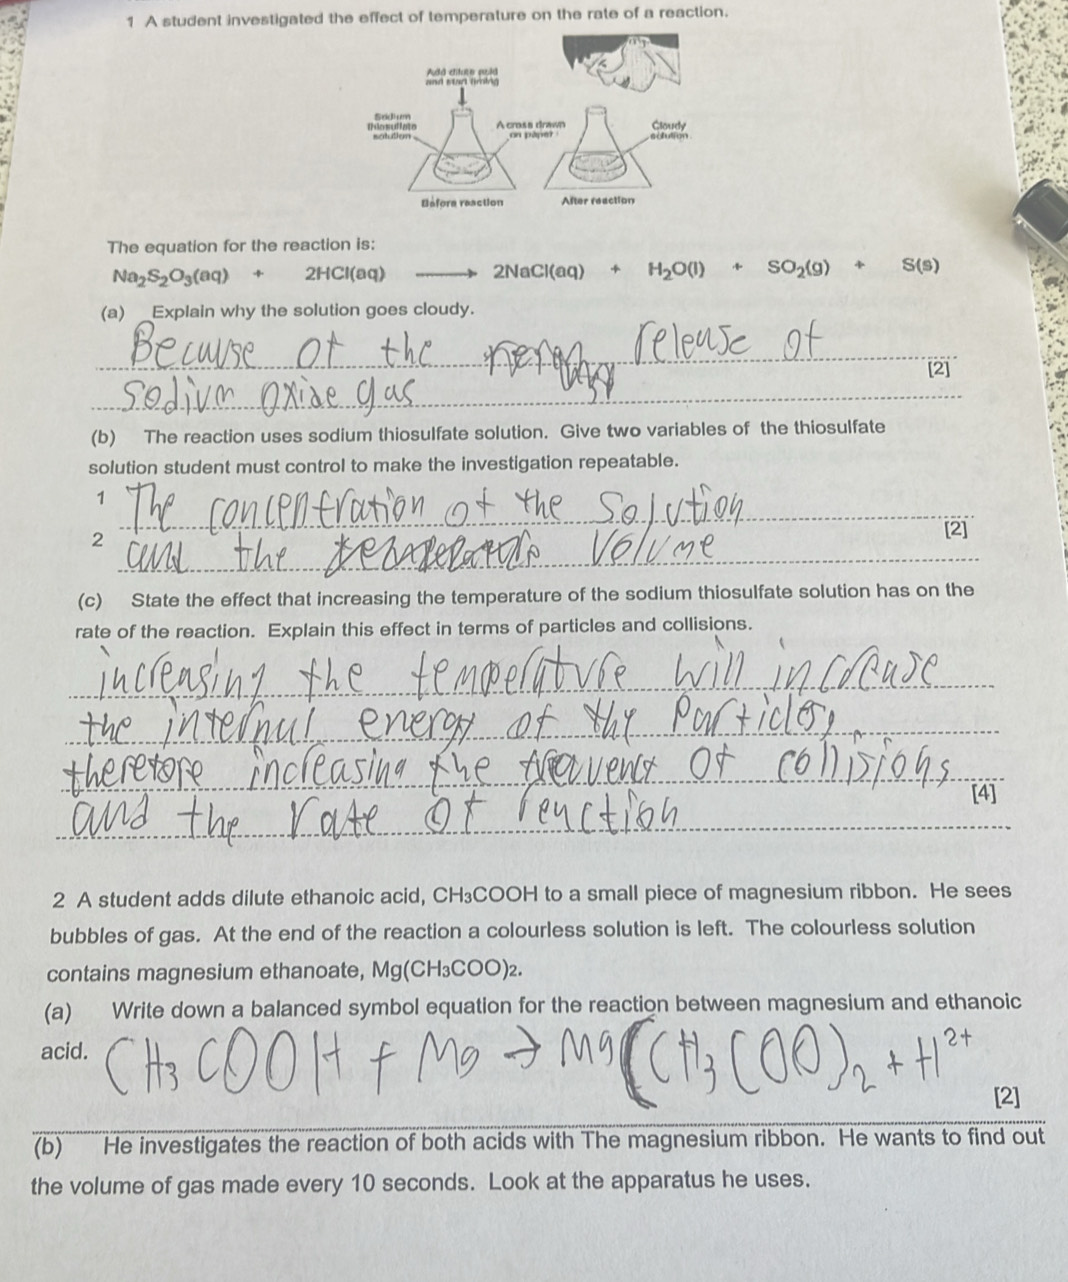 1 A student investigated the effect of temperature on the rate of a reaction.
Add dilute acid
and start timing
Sodium
thiosulfate
solution
A cross drawn
on paper
Cloudy
solution
Before reaction
After reaction
The equation for the reaction is:
Na₂S₂O₃(aq) + 2HCl(aq) ⟶ 2NaCl(aq) + H₂O(l) + SO₂(g) + S(s)
(a) Explain why the solution goes cloudy.
Becuase of the release of
[2]
sodium oxide gas
(b) The reaction uses sodium thiosulfate solution. Give two variables of the thiosulfate
solution student must control to make the investigation repeatable.
1 The concentration of the solution
[2]
2 and the volume
(c) State the effect that increasing the temperature of the sodium thiosulfate solution has on the
rate of the reaction. Explain this effect in terms of particles and collisions.
increasing the temperature will increase
the internal energy of the particles,
therefore increasing the frequency of collisions
[4]
and the rate of reaction
2 A student adds dilute ethanoic acid, CH₃COOH to a small piece of magnesium ribbon. He sees
bubbles of gas. At the end of the reaction a colourless solution is left. The colourless solution
contains magnesium ethanoate, Mg(CH₃COO)₂.
(a) Write down a balanced symbol equation for the reaction between magnesium and ethanoic
acid. CH₃COOH + Mg → Mg(CH₃COO)₂ + H²⁺
[2]
(b) He investigates the reaction of both acids with The magnesium ribbon. He wants to find out
the volume of gas made every 10 seconds. Look at the apparatus he uses.